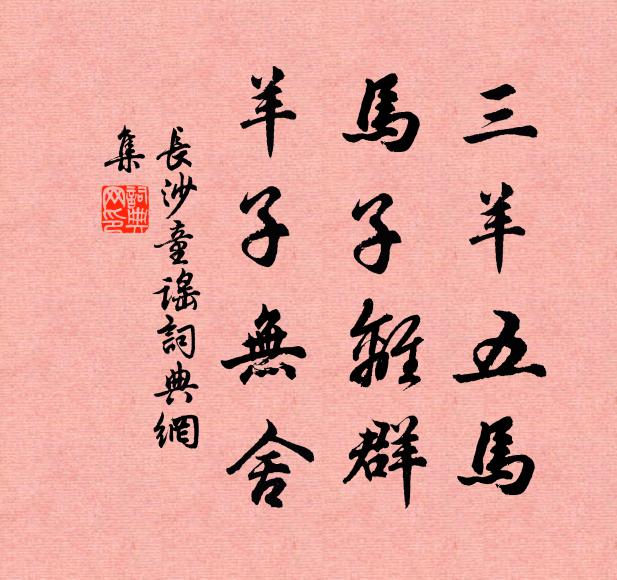 三羊五馬
馬子離群
羊子無舍
長沙童謠詞典網
集
詞典
网印